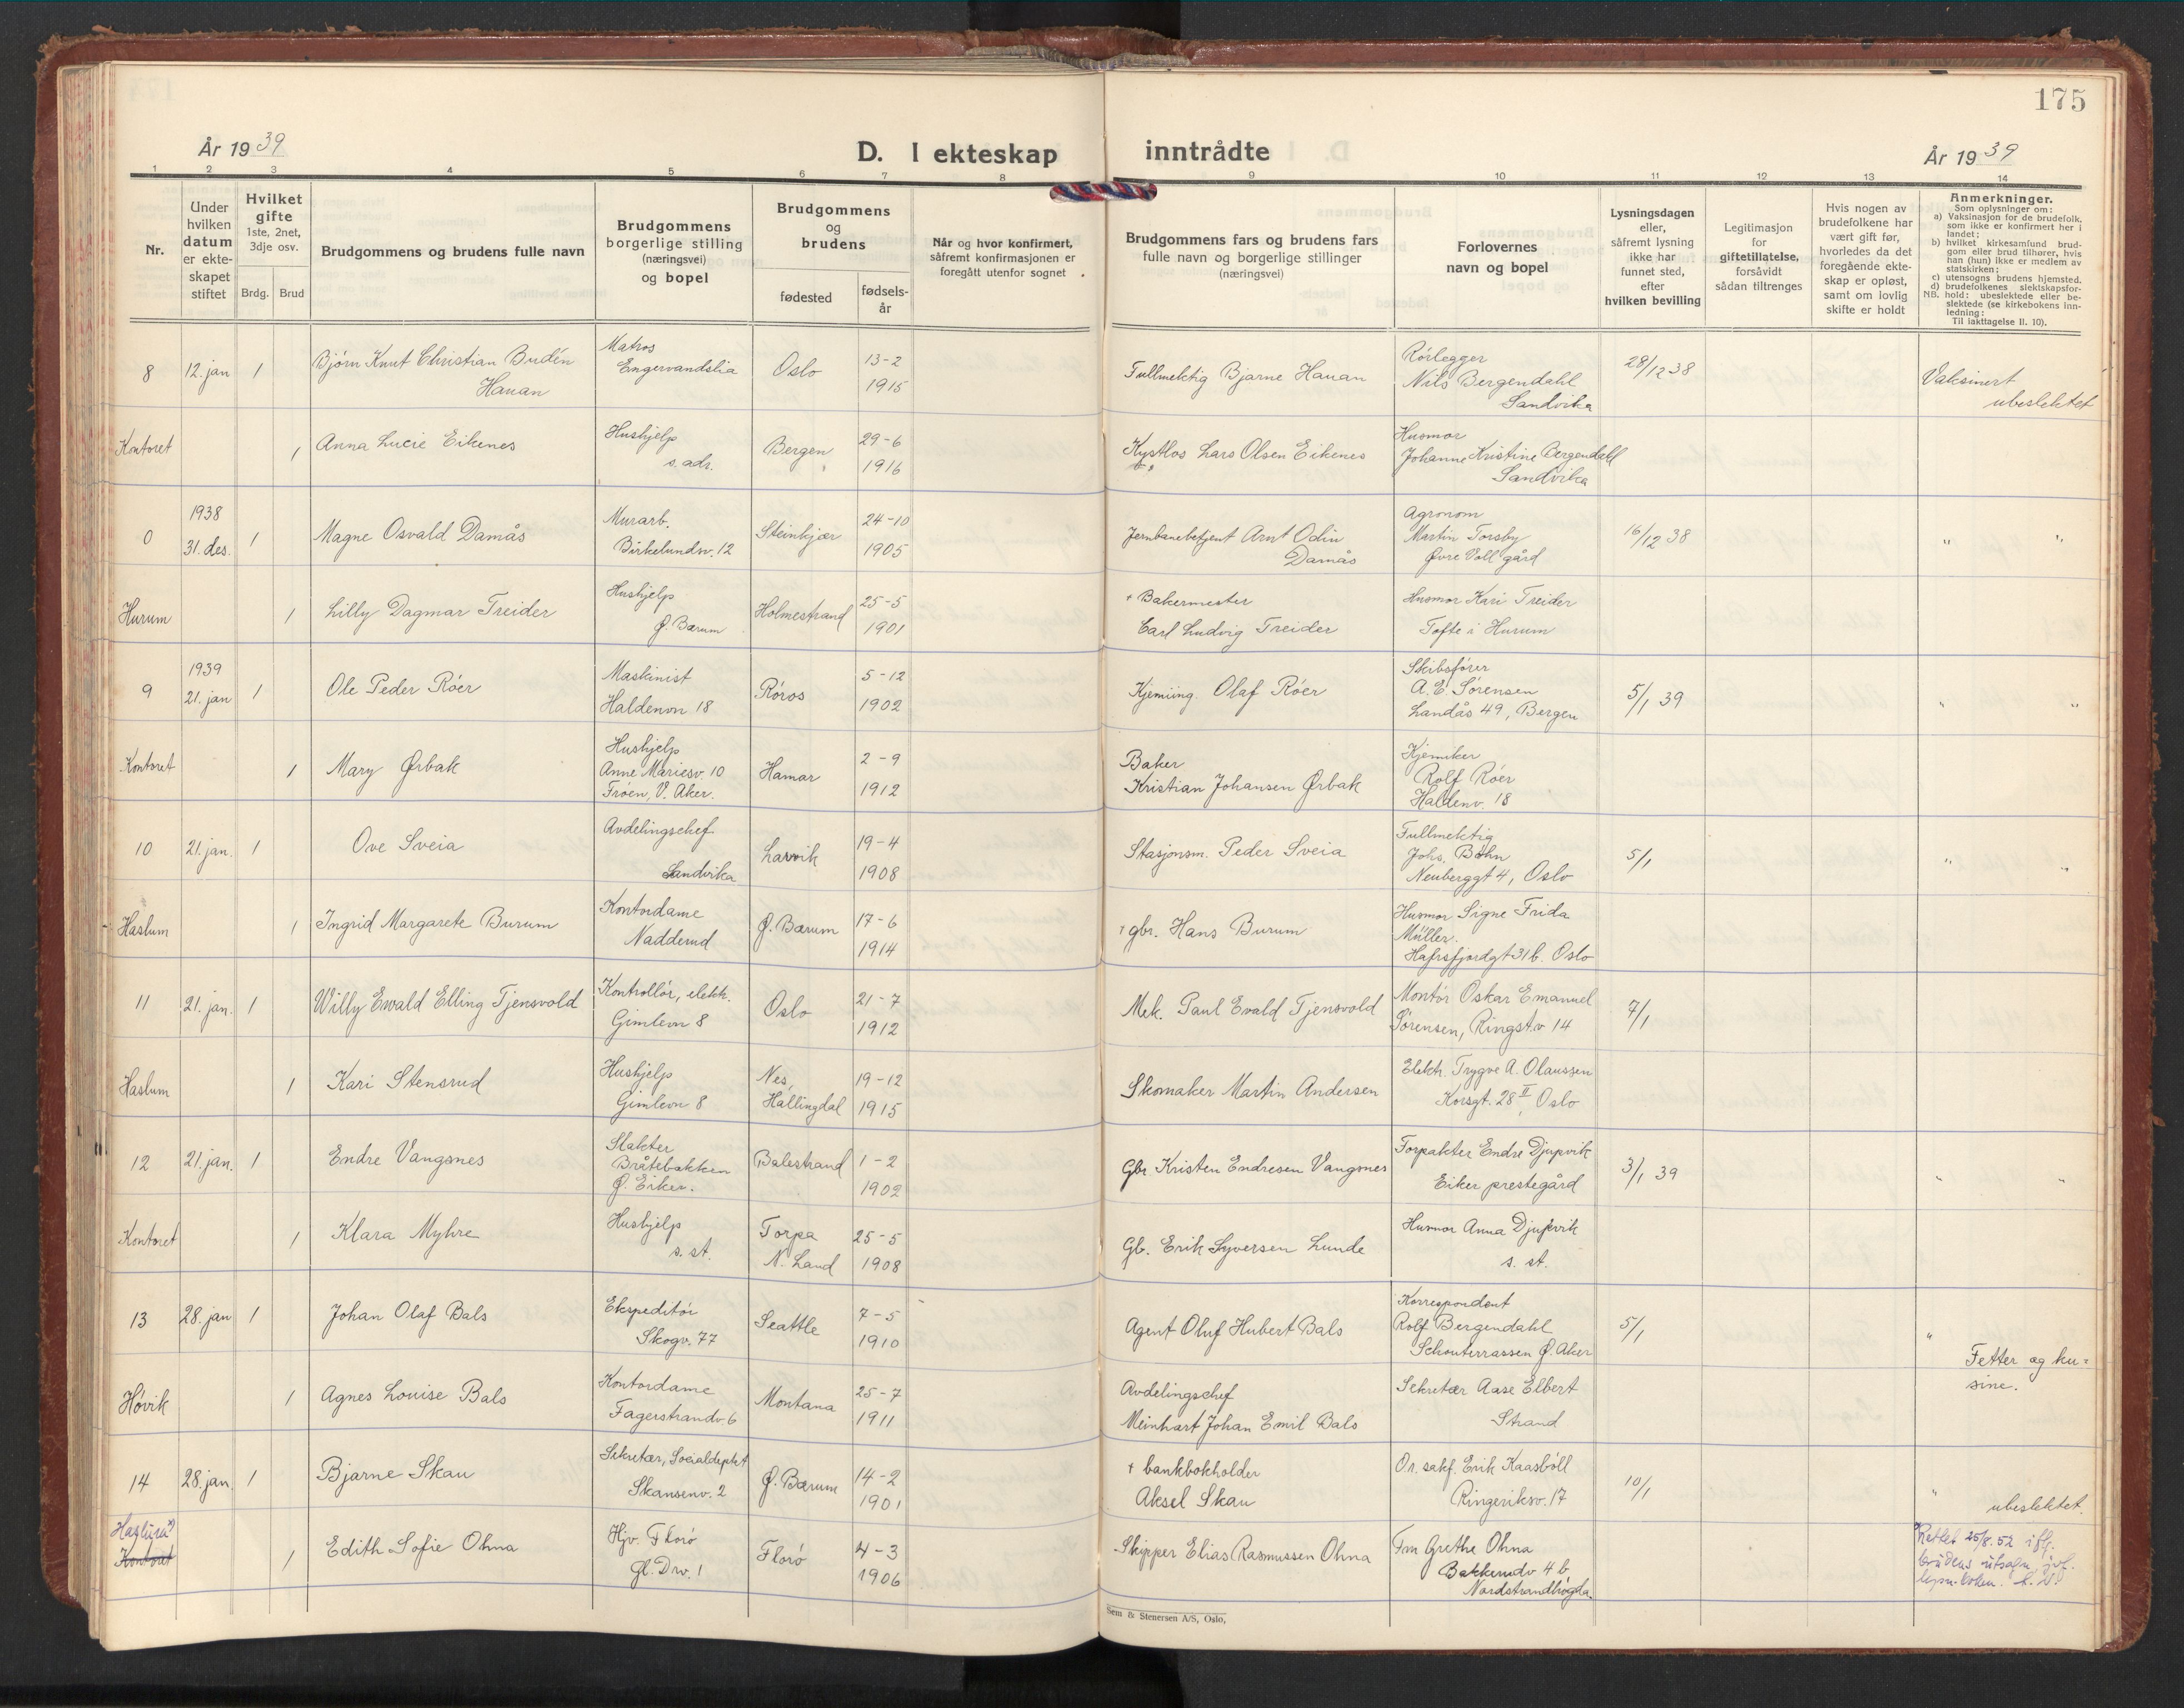 175
År 1939
D. I ekteskap inntrådte
År 1939
1 2 3 4 5 6 7 8 9 10 11 12 13 14
Nr.
Under hvilken datum er ekteskapet stiftet
Hvilket gifte 1ste, 2net, 3dje osv.
Brdg. Brud
Brudgommens og brudens fulle navn
Brudgommens borgerlige stilling (næringsvei) og bopel
Brudgommens og brudens
fødested
fødselsår
Når og hvor konfirmert, såfremt konfirmasjonen er foregått utenfor sognet
Brudgommens fars og brudens fars fulle navn og borgerlige stillinger (næringsvei)
Forlovernes navn og bopel
Lysningsdagen eller, såfremt lysning ikke har funnet sted, efter hvilken bevilling
Legitimasjon for giftetillatelse, forsåvidt sådan tiltrenges
Hvis nogen av brudefolkene har vært gift før, hvorledes da det foregående ekteskap er opløst, samt om lovlig skifte er holdt
Anmerkninger.
Som oplysninger om:
a) Vaksinasjon for de brudefolk, som ikke er konfirmert her i landet;
b) hvilket kirkesamfund brudgom eller brud tilhører, hvis han (hun) ikke er medlem av statskirken;
c) utensogns brudens hjemsted.
d) brudefolkenes slektskapsforhold: ubeslektede eller beslektede (se kirkebokens innledning:
NB.
Til iakttagelse II. 10).
8 12. jan 1 Bjørn Knut Christian Budén Hauan Matros Engervandslia Oslo 13-2 1915 Fullmektig Bjarne Hauan Rørlegger Nils Bergendahl Sandvika 28/12 38 Vaksinert ubeslektet
Kontoret 1 Anna Lucie Eikenes Hushjelp s. adr. Bergen 29-6 1916 Kystlos Lars Olsen Eikenes Husmor Johanne Kristine Bergendahl Sandvika
0 1938 31. des. 1 Magne Osvald Damås Murarb. Birkelundsv. 12 Steinkjær 24-10 1905 Jernbanebetjent Arnt Odin Damås Agronom Martin Torsby Øvre Voll gård 16/12 38 " "
Hurum 1 Lilly Dagmar Treider Hushjelp Ø. Bærum Holmestrand 25-5 1901 + Bakermester Carl Ludvig Treider Husmor Kari Treider Tofte i Hurum
9 1939 21. jan 1 Ole Peder Röer Maskinist Haldenvn 18 Røros 5-12 1902 Kjemiing. Olaf Röer Skibsfører A. E. Sørensen Landås 49, Bergen 5/1 39 " "
Kontoret 1 Mary Ørbak Hushjelp Anne Mariesv. 10 Frøen, V. Aker. Hamar 2-9 1912 Baker Kristian Johansen Ørbak Kjemiker Rolf Röer Haldenv. 18
10 21. jan. 1 Ove Sveia Avdelingschef Sandvika Larvik 19-4 1908 Stasjonsm. Peder Sveia Fullmektig Johs. Bøhn Neuberggt 4, Oslo 5/1 " "
Haslum 1 Ingrid Margarete Burum Kontordame Nadderud Ø. Bærum 17-6 1914 + gbr. Hans Burum Husmor Signe Frida Müller. Hafrsfjordgt 31 b. Oslo
11 21. jan. 1 Willy Ewald Elling Tjensvold Kontrollør, elekt. Gimlevn 8 Oslo 21-7 1912 Mek. Paul Evald Tjensvold Montør Oskar Emanuel Sørensen, Ringst.v 14 7/1
Haslum 1 Kari Stensrud Hushjelp Gimlevn 8 Nes, Hallingdal 19-12 1915 Skomaker Martin Andersen Elektr. Trygve A. Olaussen Korsgt. 28 II, Oslo
12 21. jan. 1 Endre Vangsnes Slakter Bråtebakken Ø. Eiker. Balestrand 1-2 1902 Gbr. Kristen Endresen Vangsnes Forpakter Endre Djupvik Eiker prestegård 3/1 39 " "
Kontoret 1 Klara Myhre Hushjelp s. st. Torpa N. Land 25-5 1908 Gb. Erik Syversen Lunde Husmor Anna Djupvik s. st.
13 28. jan 1 Johan Olaf Bals Ekspeditör Skogv. 77 Seattle 7-5 1910 Agent Oluf Hubert Bals Korrespondent Rolf Bergendahl Schouterrassen Ø. Aker 5/1 " Fetter og kusine.
Høvik 1 Agnes Louise Bals Kontordame Fagerstrandv. 6 Montana 25-7 1911 Avdelingschef Meinhart Johan Emil Bals Sekretær Aase Elbert Strand
14 28. jan. 1 Bjarne Skau Sekretær, Socialdeptet Skansenv. 2 Ø. Bærum 14-2 1901 + bankbokholder Aksel Skau O.r. sakf. Erik Kaasböll Ringeriksv. 17 10/1 " ubeslektet.
Haslum x) Kontoret 1 Edith Sofie Ohna Hjv. Florø Gl. Drv. 1 Florø 4-3 1906 Skipper Elias Rasmussen Ohna Frn Grethe Ohna Bakkeudv 4 b, Nordstrandhøgda. Rettet 25/8. 52 iflg. brudens utsagn jvf.
Sem & Stenersen A/S, Oslo,